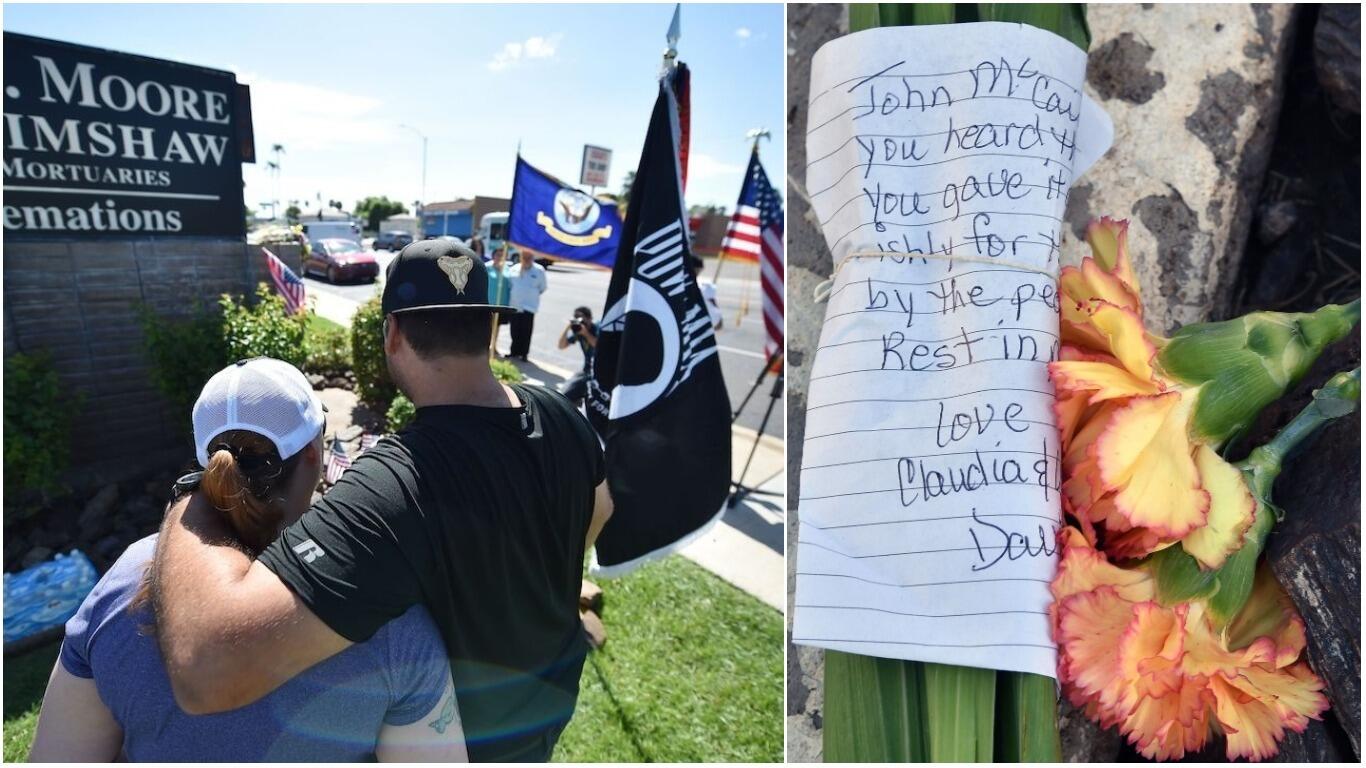 . MOORE
IMSHAW
MORTUARIES
emations
POW★MIA
R
John McCai
you heard th
you gave it
ishly for
by the peo
Rest in
Love
Claudia &
Davi